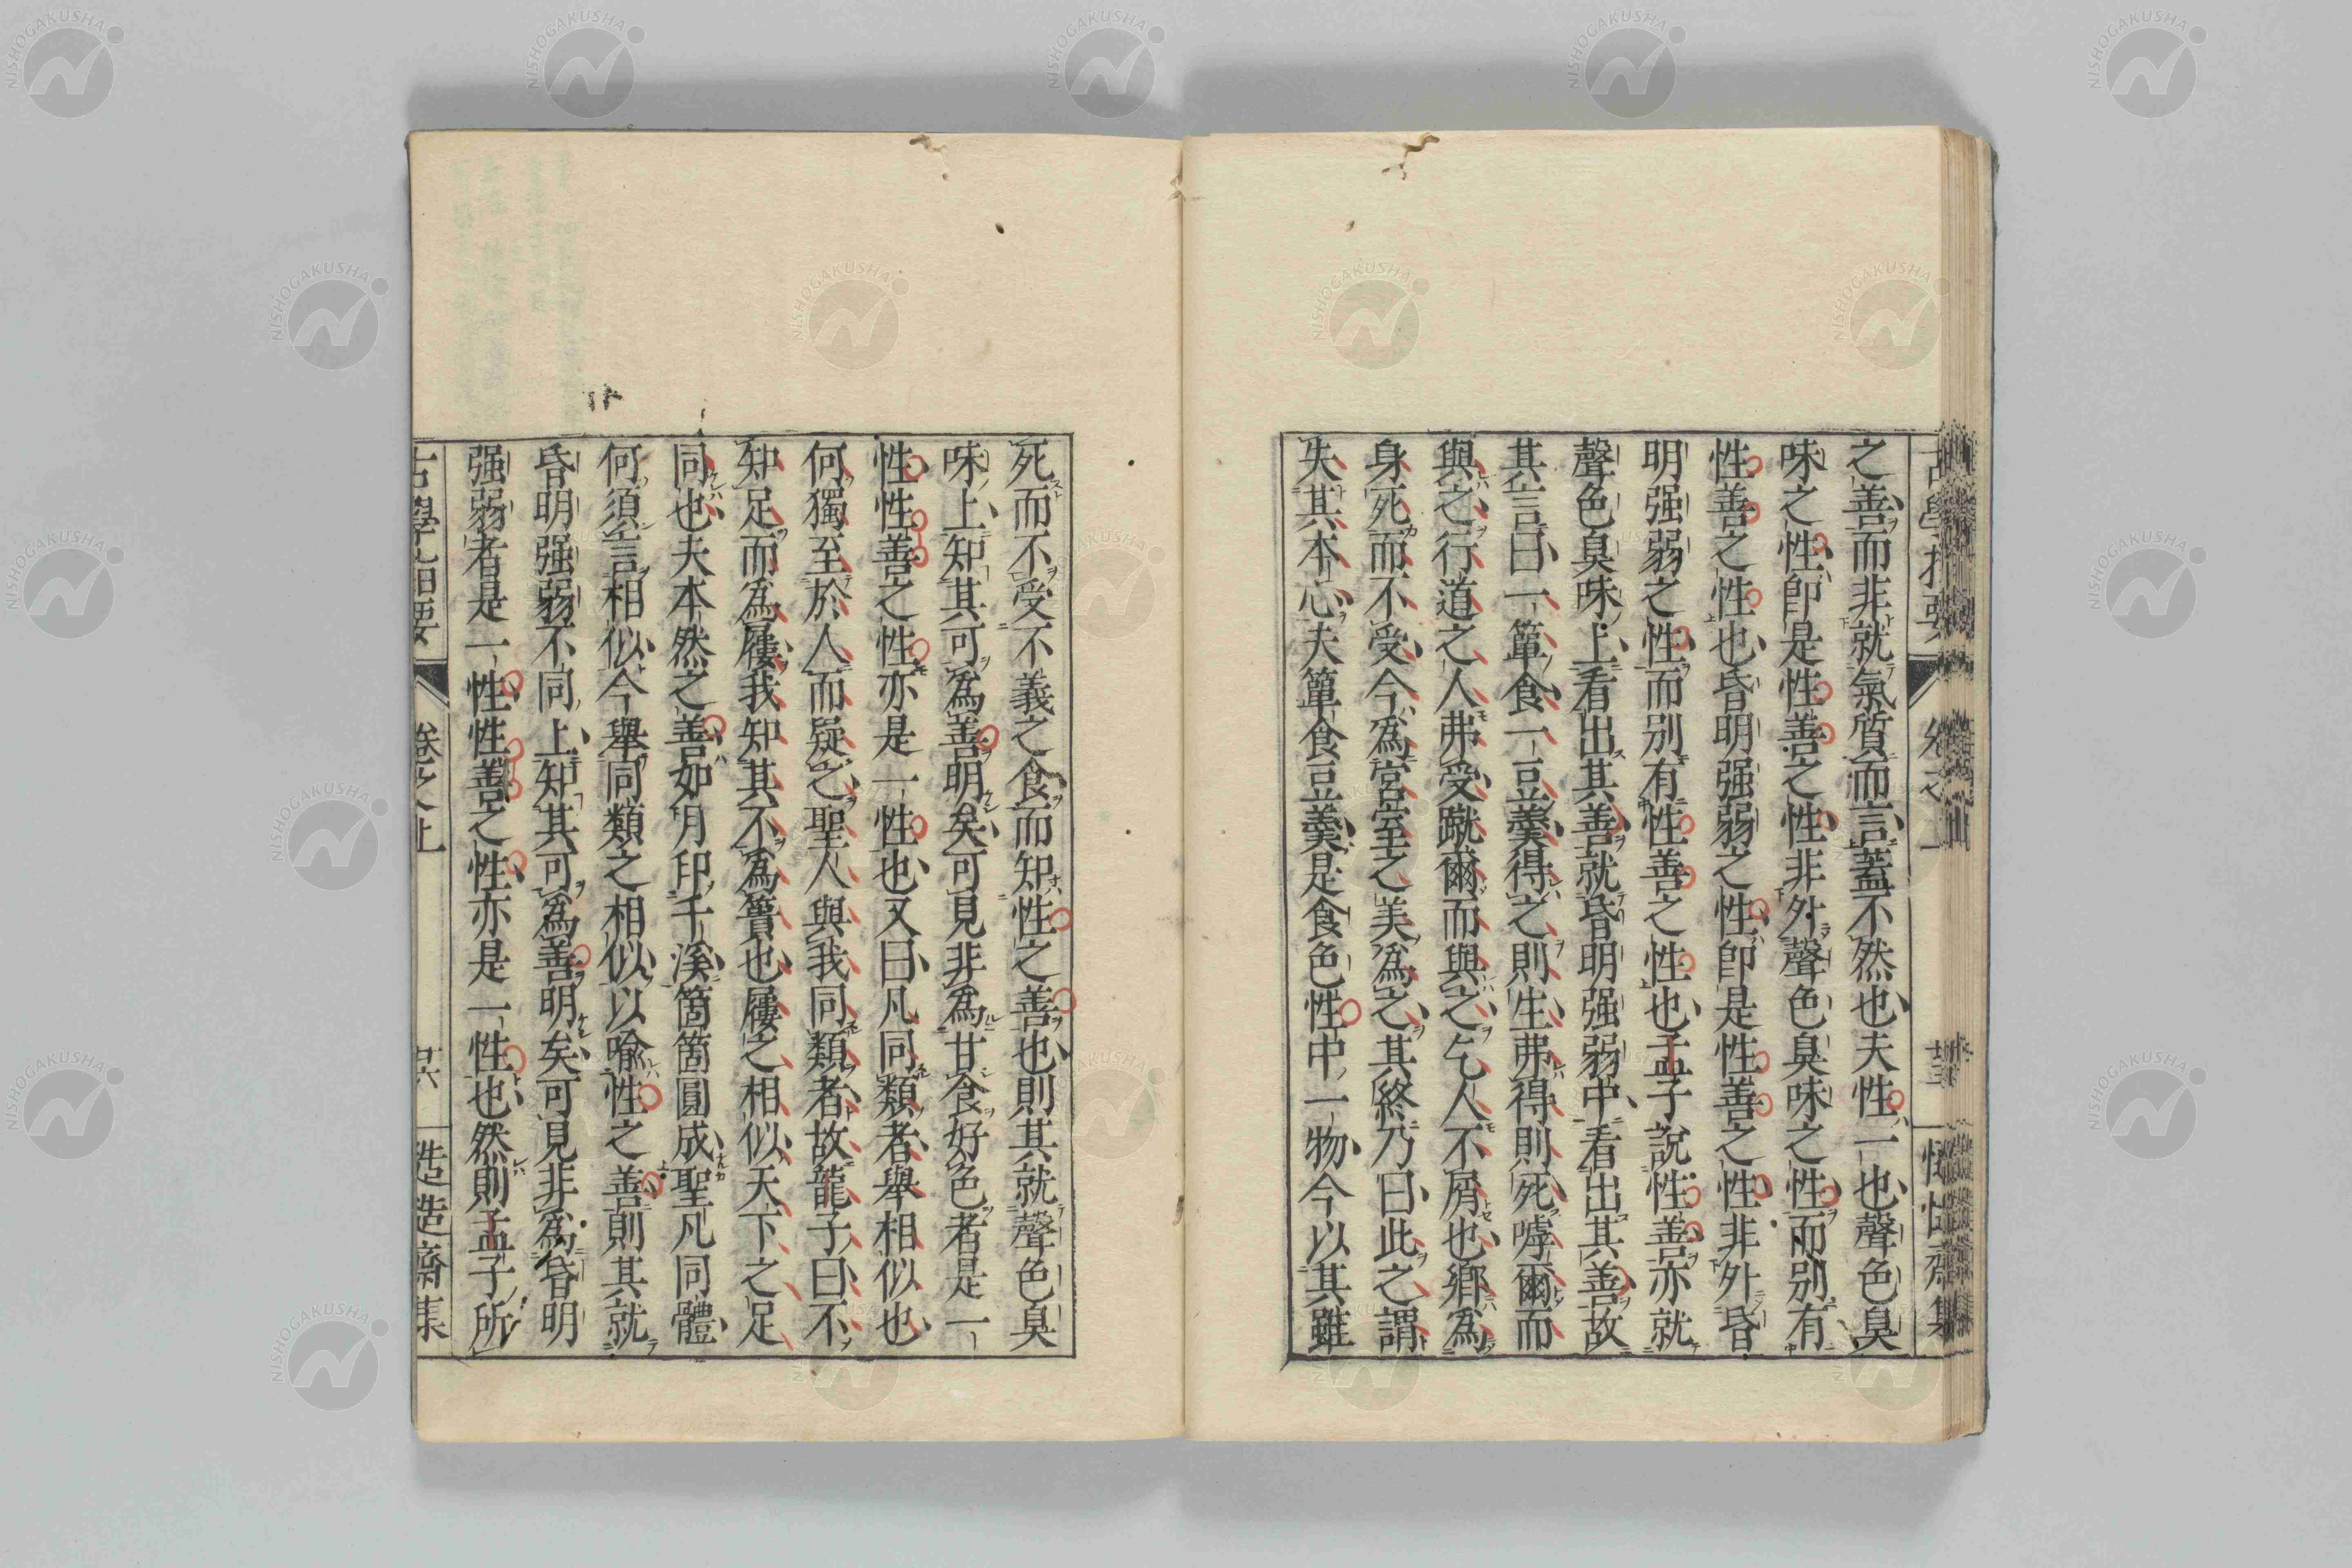 之善而非就氣質而言蓋不然也夫性一也聲色臭
味之性卽是性善之性非外聲色臭味之性而別有
性善之性也昏明强弱之性卽是性善之性非外昏
明强弱之性而別有性善之性也孟子說性善亦就
聲色臭味上看出其善就昏明强弱中看出其善故
其言曰一簞食一豆羹得之則生弗得則死嘑爾而
與之行道之人弗受蹴爾而與之乞人不屑也鄕爲
身死而不受今爲宮室之美爲之其終乃曰此之謂
失其本心夫簞食豆羹是食色性中一物今以其雖
死而不受不義之食而知性之善也則其就聲色臭
味上知其可爲善明矣可見非爲甘食好色者是一
性性善之性亦是一性也又曰凡同類者舉相似也
何獨至於人而疑之聖人與我同類者故龍子曰不
知足而爲屨我知其不爲蕢也屨之相似天下之足
同也夫本然之善如月印千溪箇箇圓成聖凡同體
何須言相似今舉同類之相似以喩性之善則其就
昏明强弱不同上知其可爲善明矣可見非爲昏明
强弱者是一性性善之性亦是一性也然則孟子所
古學指要
卷之上